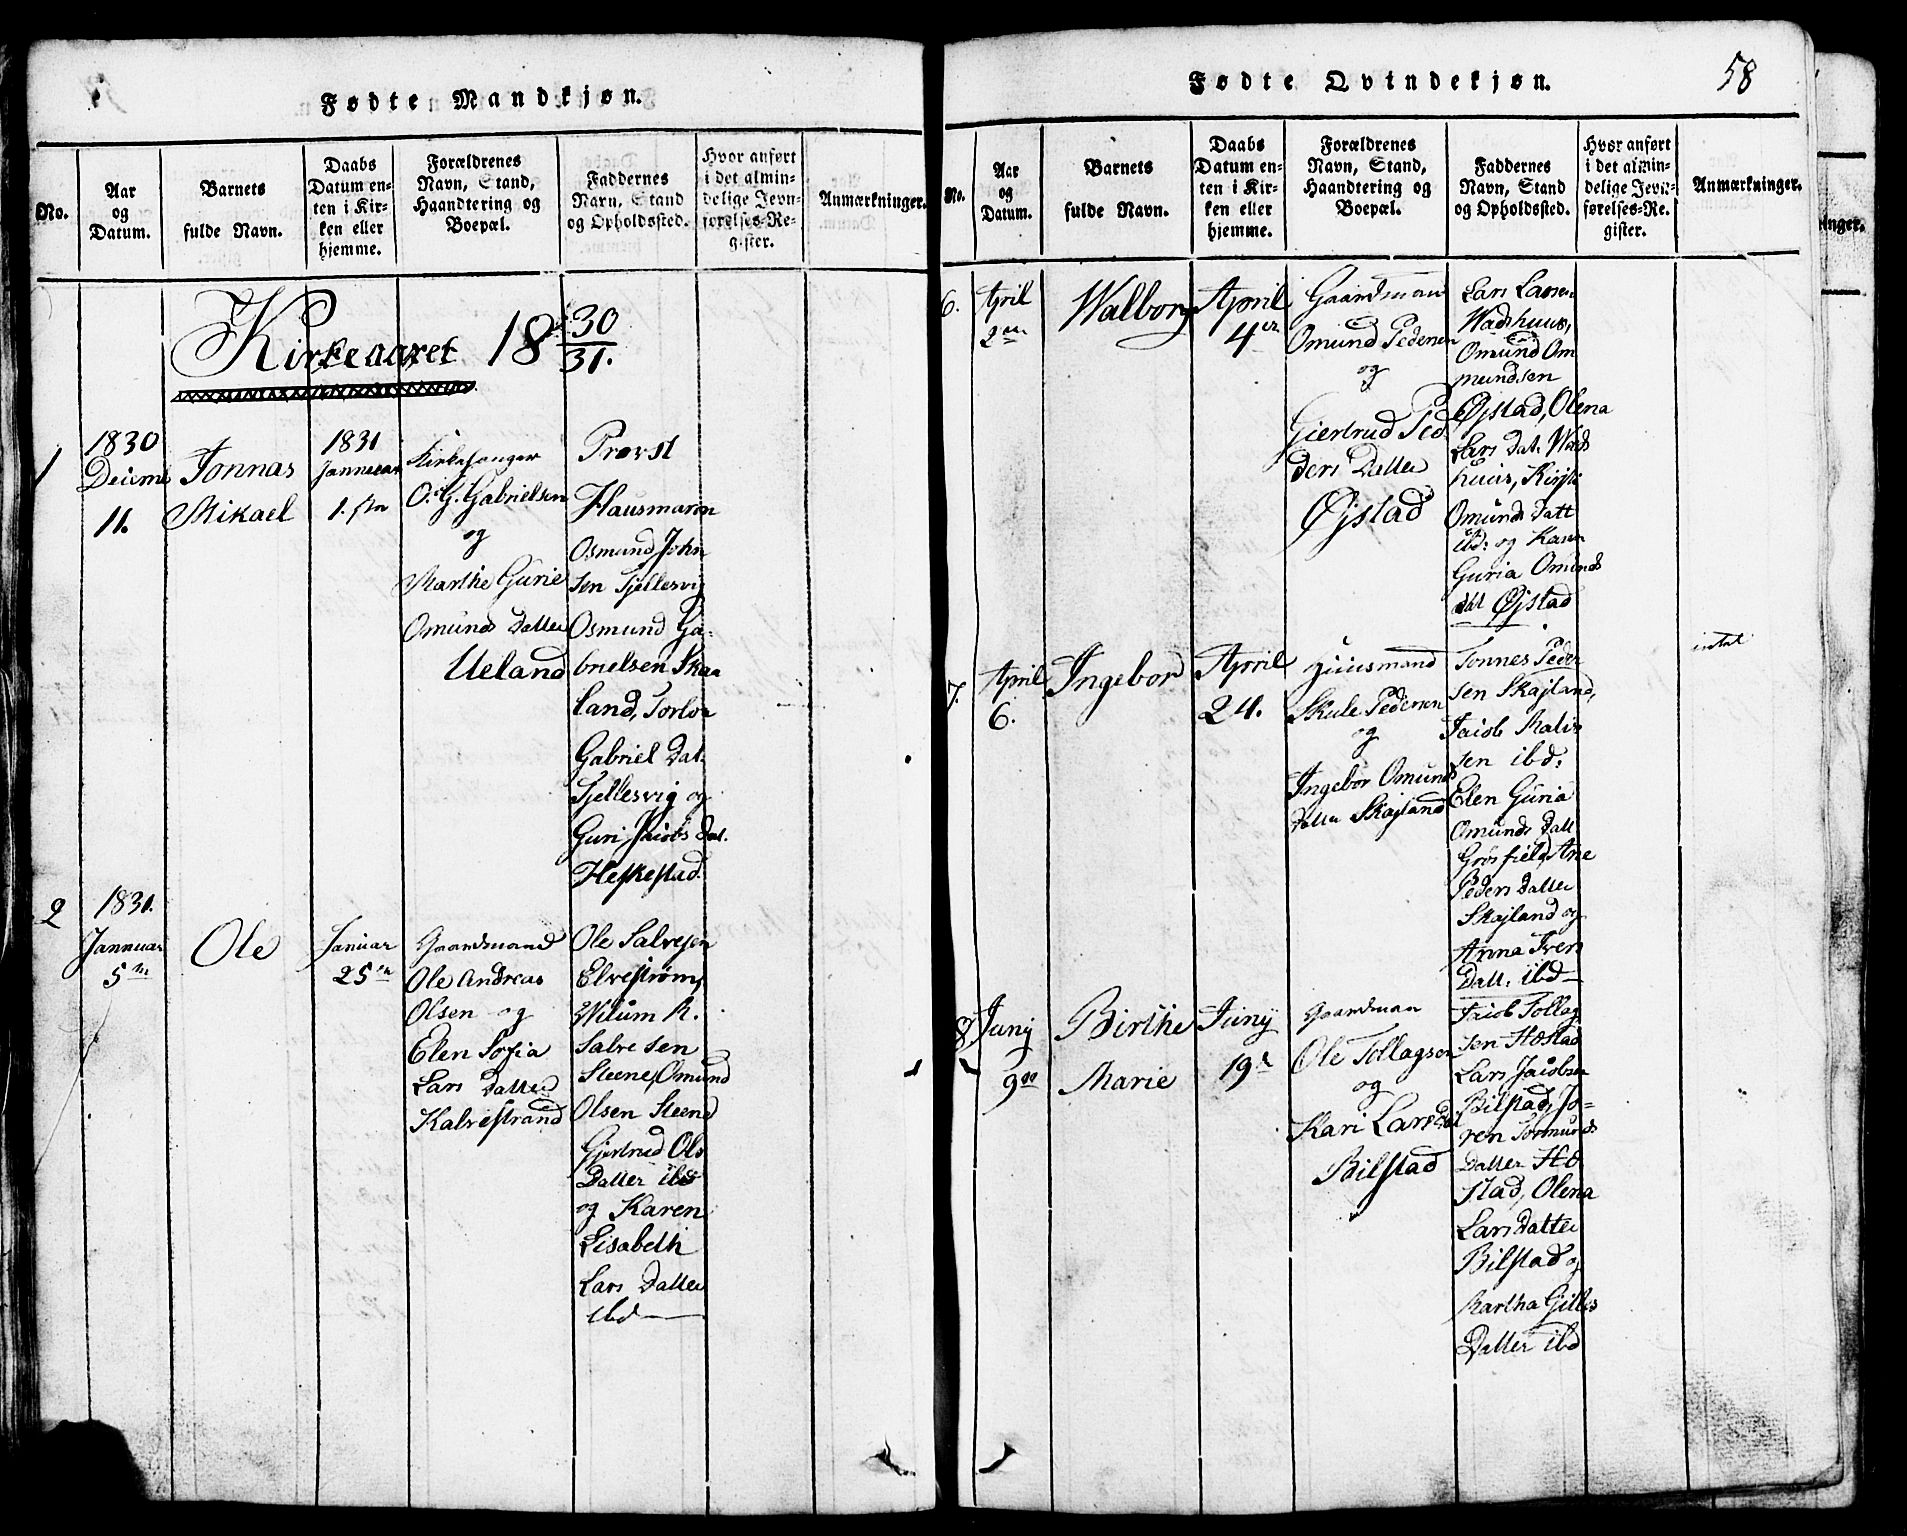 Fødte Mandkjøn.
No.
Aar
og
Datum.
Barnets
fulde Navn.
Daabs
Datum en-
ten i Kir-
ken eller
hjemme.
Forældrenes
Navn, Stand,
Haandtering og
Boepæl.
Faddernes
Navn, Stand
og Opholdssted.
Hvor anført
i det almin-
delige Jevn-
førelses-Re-
gister.
Anmærkninger.
Kirkeaaret 18 30
31.
1
1830
11.
Tonnas
Mikael
1831
Kirkesanger
O. G. Gabrielsen
og
Marthe Gurie
Omunds Datter
Ueland
Provst
Hausmann
Osmund John
sen Tjellesvig
Osmund Ga-
brielsen Skaa
land,
Gabriel Dat.
Tjellesvig og
Guri Jacobs Dat.
Heskestad.
2
1831.
Jannuar
5
Ole
Januar
25
Gaardmand
Ole Andreas
Olsen og
Elen Sofia
Lars Datter
Kalvestrand
Ole Salvesen
Elvestrøm,
Wilum A.
Salvesen
Steene, Omund
Olsen Steene
Gjertrud Ols
Datter ibd
og Karen
Lisabeth
Lars Datter
ibd
Fødte Qvindekjøn.
58
No.
Aar
og
Datum.
Barnets
fulde Navn.
Daabs
Datum en-
ten i Kir-
ken eller
hjemme.
Forældrenes
Navn, Stand,
Haandtering og
Boepæl.
Faddernes
Navn, Stand
og Opholdssted.
Hvor anført
i det almin-
delige Jevn-
førelses-Re-
gister.
Anmærkninger.
inger.
6.
April
2
Walborg
April
4
Gaardman
Omund Pedersen
og
Giertrud Ped
ders Datter
Øjstad
Lars Larsen
Wadshuus,
Omund Om
mundsen
Øjstad, Olena
Lars Dat. Wads
huus,
Omunds Datt
ibd: og
Guria Omunds
dat Øjstad
7.
April
6.
Ingebor
April
24.
Huusmand
Skule Pedersen
og
Ingebor Omunds
Datter Skajland
Tonnes Peder
sen Skajland,
Jacob
sen ibd:
Elen Guria
Omunds Datt
Ane
Peders Datter
Skajland og
Anna Iver
Datt. ibd
8
Junj
9
Birthe
Marie
Junij
19
Gaardman
Ole Tollagsen
og
Kari Lars Dat
Bilstad
Jacob Tollag
sen
Lars Jacobsen
Bilstad,
Datter
stad, Olena
Lars Datter
Bilstad og
Martha Gilles
Datter ibd